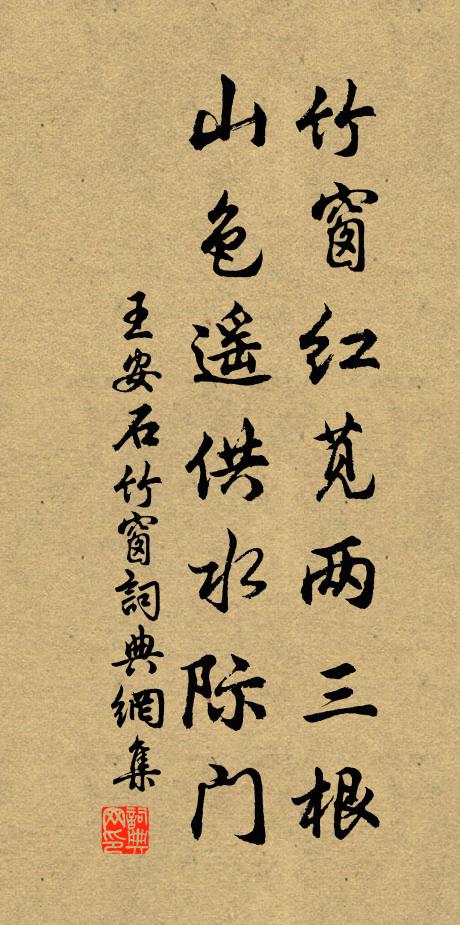 竹窗红苋两三根
山色遥供水际门
王安石竹窗詞典網集
詞典网印